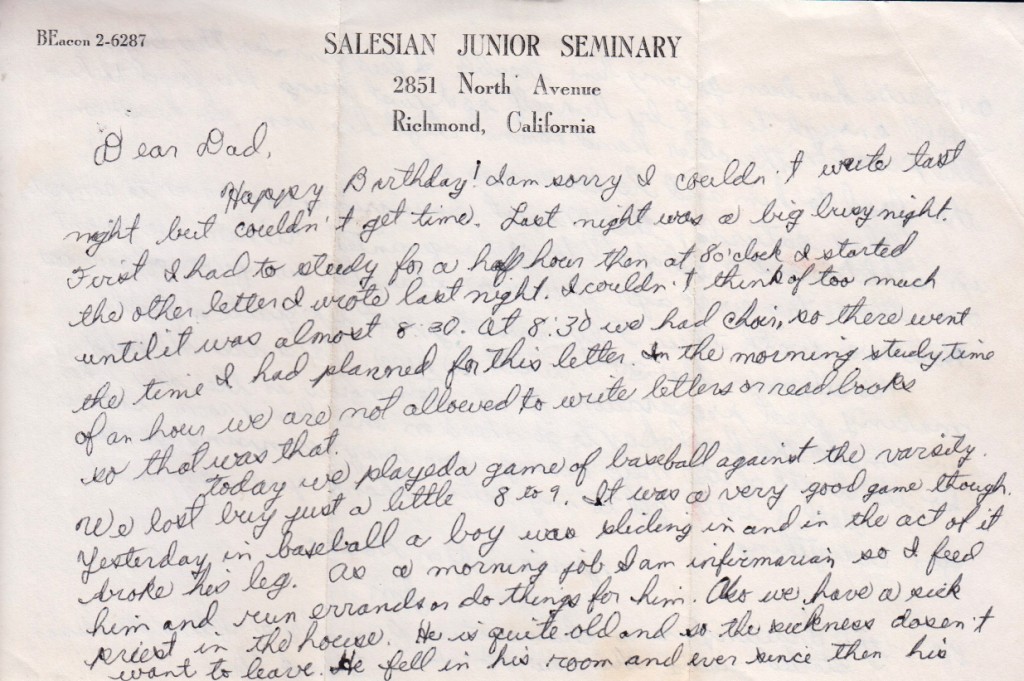 BEacon 2-6287
SALESIAN JUNIOR SEMINARY
2851 North Avenue
Richmond, California
Dear Dad,
Happy Birthday! I am sorry I couldn't write last
night but couldn't get time. Last night was a big busy night.
First I had to study for a half hour then at 8 o'clock I started
the other letter I wrote last night. I couldn't think of too much
until it was almost 8:30. At 8:30 we had choir, so there went
the time I had planned for this letter. In the morning study time
of an hour we are not allowed to write letters or read books
so that was that.
Today we played a game of baseball against the varsity.
We lost buy just a little 8 to 9. It was a very good game though.
Yesterday in baseball a boy was sliding in and in the act of it
broke his leg. As a morning job I am infirmarian so I feed
him and run errands or do things for him. Also we have a sick
priest in the house. He is quite old and so the sickness dosen't
want to leave. He fell in his room and ever since then his